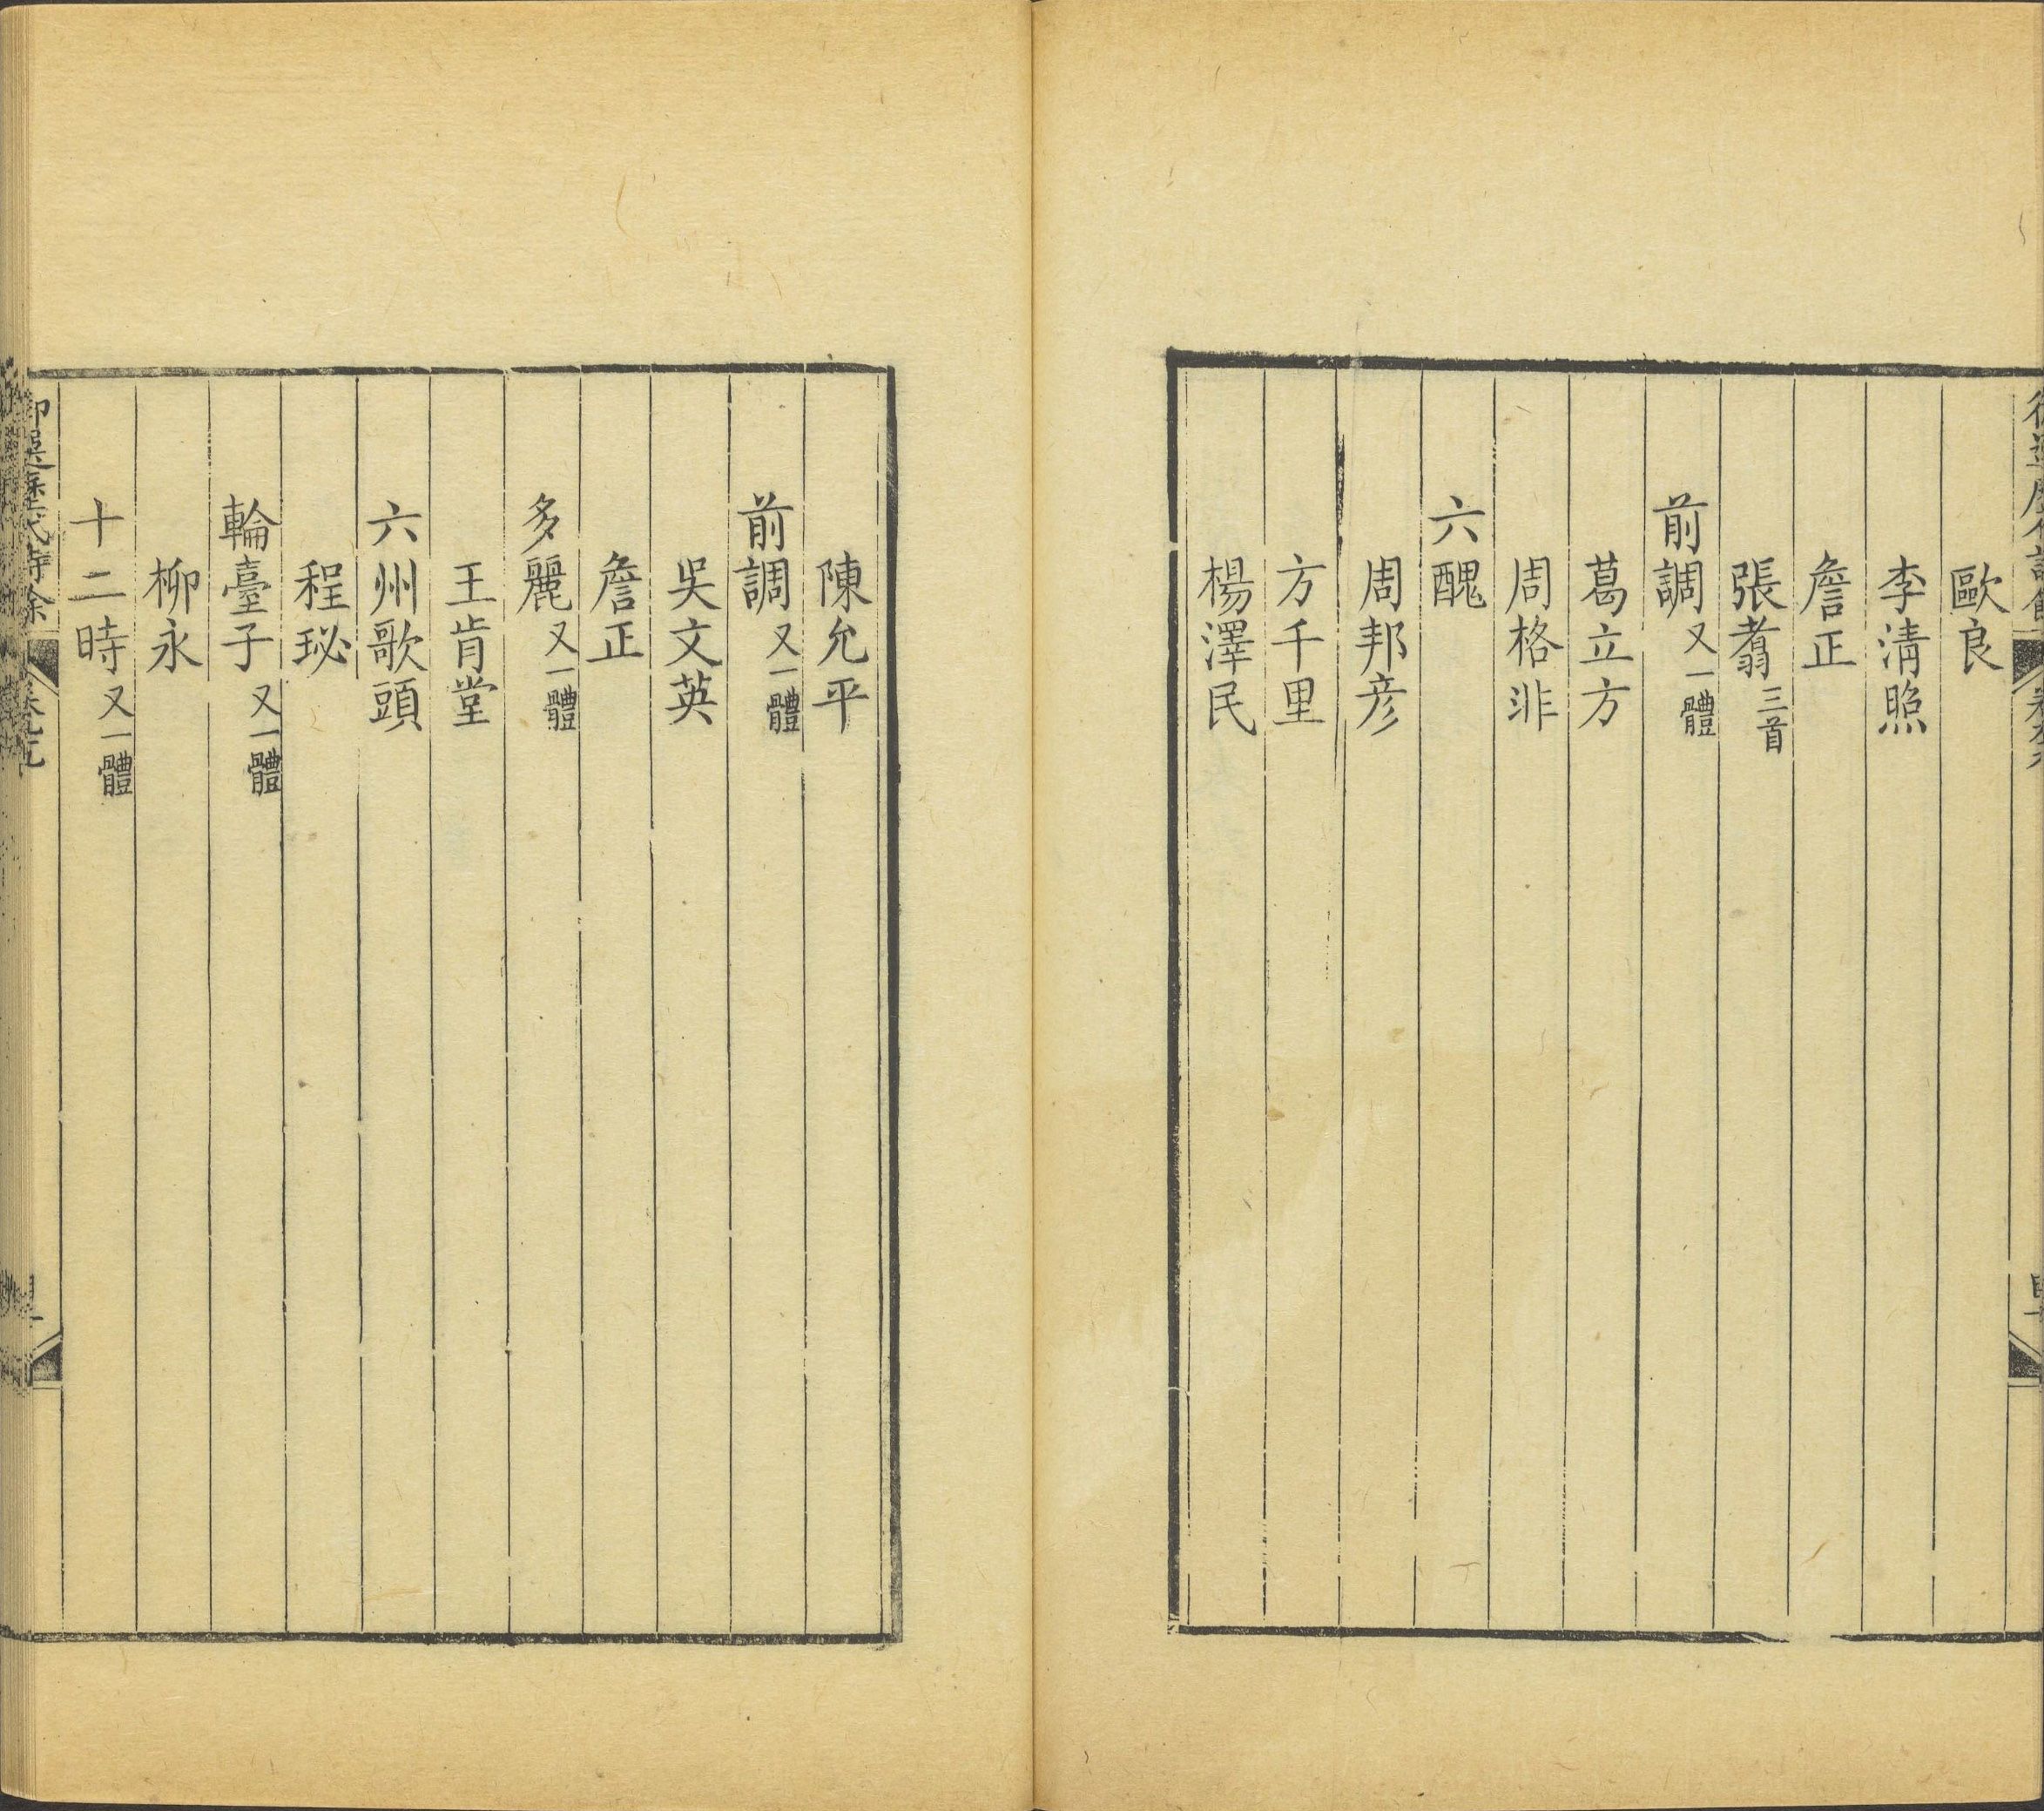 歐良
李清照
詹正
張翥三首
前調又一體
葛立方
周格非
六醜
周邦彦
方千里
楊澤民
陳允平
前調又一體
吳文英
詹正
多麗又一體
王肯堂
六州歌頭
程珌
輪臺子又一體
柳永
十二時又一體